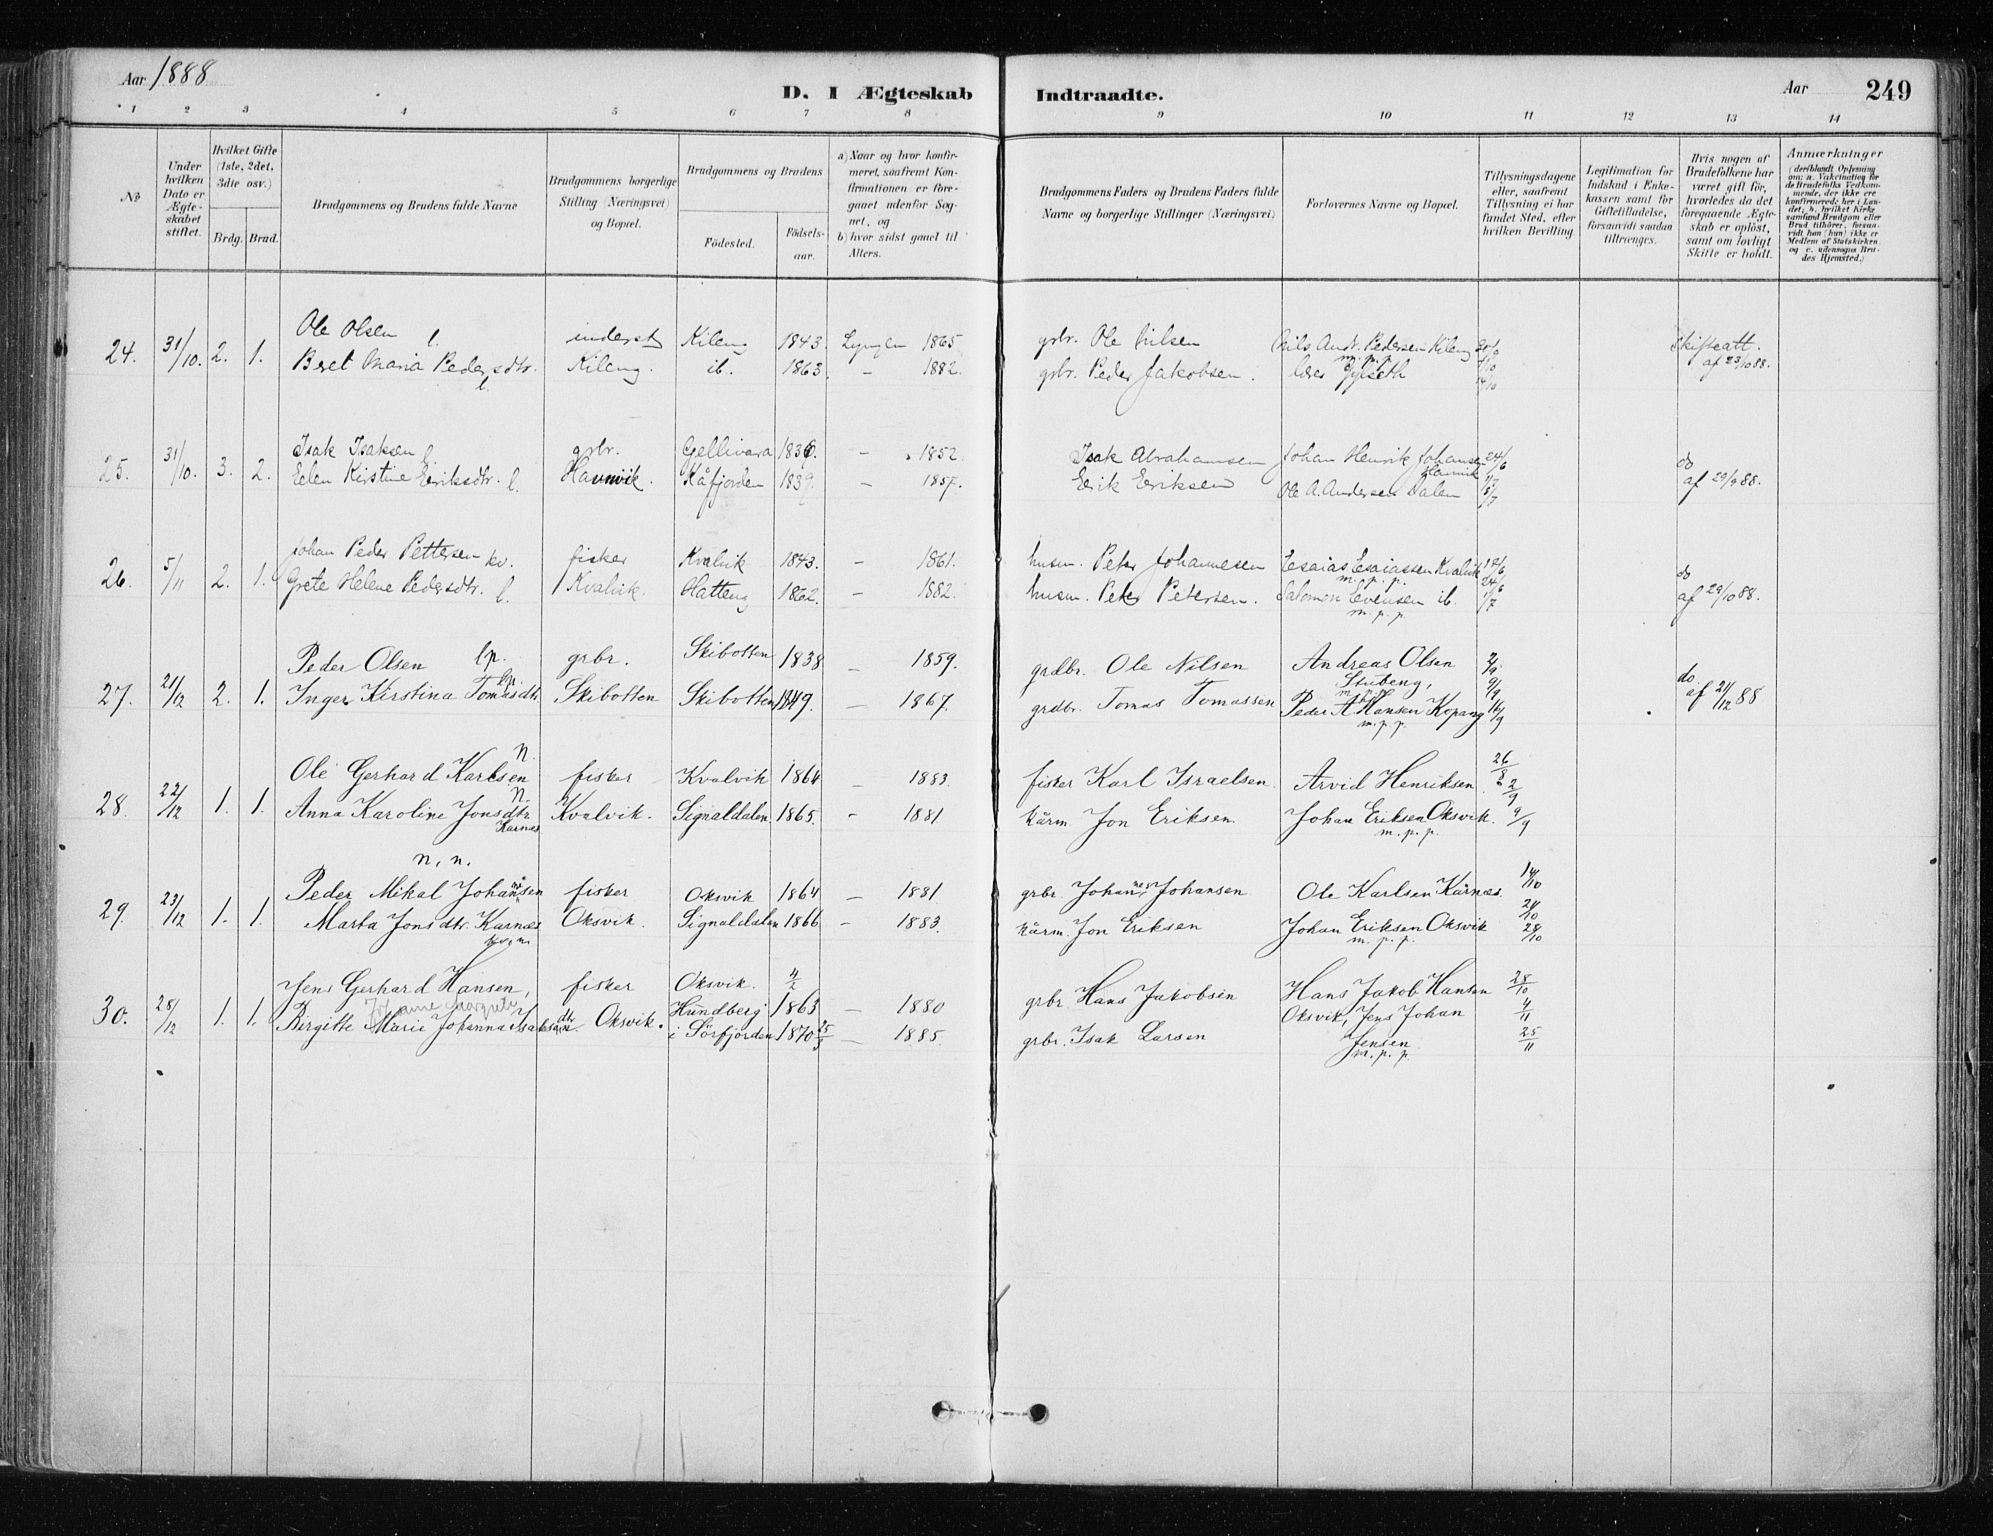 Aar 1888
D. I Ægteskab Indtraadte.
Aar 249
1 2 3 4 5 6 7 8 9 10 11 12 13 14
No
Under hvilken Dato er Ægteskabet stiftet.
Hvilket Gifte (1ste, 2det, 3die osv.)
Brdg. Brud.
Brudgommens og Brudens fulde Navne
Brudgommens borgerlige Stilling (Næringsvei) og Bopæl.
Brudgommens og Brudens
Födested. Födselsaar.
a) Naar og hvor konfirmeret, saafremt Konfirmationen er foregaaet udenfor Sognet, og
b) hvor sidst gaaet til Alters.
Brudgommens Faders og Brudens Faders fulde Navne og borgerlige Stillinger (Næringsvei)
Forlovernes Navne og Bopæl.
Tillysningsdagene eller, saafremt Tillysning ei har fundet Sted, efter hvilken Bevilling
Legitimation for Indskud i Enkekassen samt for Giftetilladelse, forsaavidt saadan tiltrænges.
Hvis nogen af Brudefolkene har været gift för, hvorledes da det foregaaende Ægteskab er oplöst, samt om lovligt Skifte er holdt.
Anmærkninger (deriblandt Oplysning om: a. Vakcination for de Brudefolks Vedkommende, der ikke ere konfirmerede her i Landet; b. hvilket Kirkesamfund Brudgom eller Brud tilhörer, forsaavidt han (hun) ikke er Medlem af Statskirken, og c. udensogns Brudes Hjemsted.)
24. 31/10. 2. 1. Ole Olsen l. inderst Kileng 1843. Lyngen 1865 grbr. Ole Nilsen Nils Andr. Pedersen Kileng 30/9 Skifteatt.
Beret Maria Pedersdtr. l. Kileng. ib. 1863. – 1882. grbr. Peder Jakobsen. m.p.p. lærer Gylseth 14/10 af 23/10 88.
25. 31/10. 3. 2. Isak Isaksen l. grbr. Gellivara 1836. – 1852. Isak Abrahamsen Johan Henrik Johansen Havnvik 24/6 do
Elen Kirstine Eriksdtr. l. Havnvik. Kåfjorden 1839. – 1857. Erik Eriksen Ole A. Andersen Dalen 1/7 af 29/9 88.
26. 5/11 2. 1. Johan Peder Pettersen kv. fisker Kvalvik 1843. – 1861. husm. Peter Johannesen Esaias Esaiassen Kvalvik m.p.p. 17/6 24/6 do
Grete Helene Pedersdtr. l. Kvalvik. Hatteng 1862. – 1882. husm. Peter Petersen. Salomon Evensen ib. m.p.p. 1/7 af 29/10 88.
27. 21/12 2. 1. Peder Olsen lp. grbr. Skibotten 1838 – 1859. grdbr. Ole Nilsen Andreas Olsen Stubeng, m.p.p. 2/9 9/9 do.
Inger Kirstina Tomasdtr. lp. Skibotten Skibotten 1849. – 1867. grdbr. Tomas Tomassen Peder A Hansen Kopang m.p.p. 16/9 af 21/12 88
28. 22/12 1. 1. Ole Gerhard Karlsen n. fisker Kvalvik 1864 – 1883. fisker Karl Israelsen. Arvid Henriksen. 26/8 2/9
Anna Karoline Jonsdtr. n. Karnæs Kvalvik. Signaldalen 1865. – 1881 kårm Jon Eriksen. Johan Eriksen Oksvik. m.p.p. 9/9
29. 23/12 1. 1. n. n. Peder Mikal Johansen fisker Oksvik 1864 – 1881 grbr. Johannes Johansen Ole Karlsen Karnæs. 14/10
Marta Jonsdtr. Karnæs Oksvik. Signaldalen 1866 – 1883. kårm. Jon Eriksen Johan Eriksen Oksvik m.p.p. 21/10 28/10
30. 28/12 1. 1. Jens Gerhard Hansen, fisker Oksvik. 4/2 1863 – 1880 grbr. Hans Jakobsen Hans Jakob Hansen 28/10
Birgitte Marie Johanna Isaksdtr. Oksvik. Hundberg i Sörfjorden 1870 25/3 – 1885. grbr. Isak Larsen Oksvik, Jens Johan Jensen m.p.p. 4/11 25/11